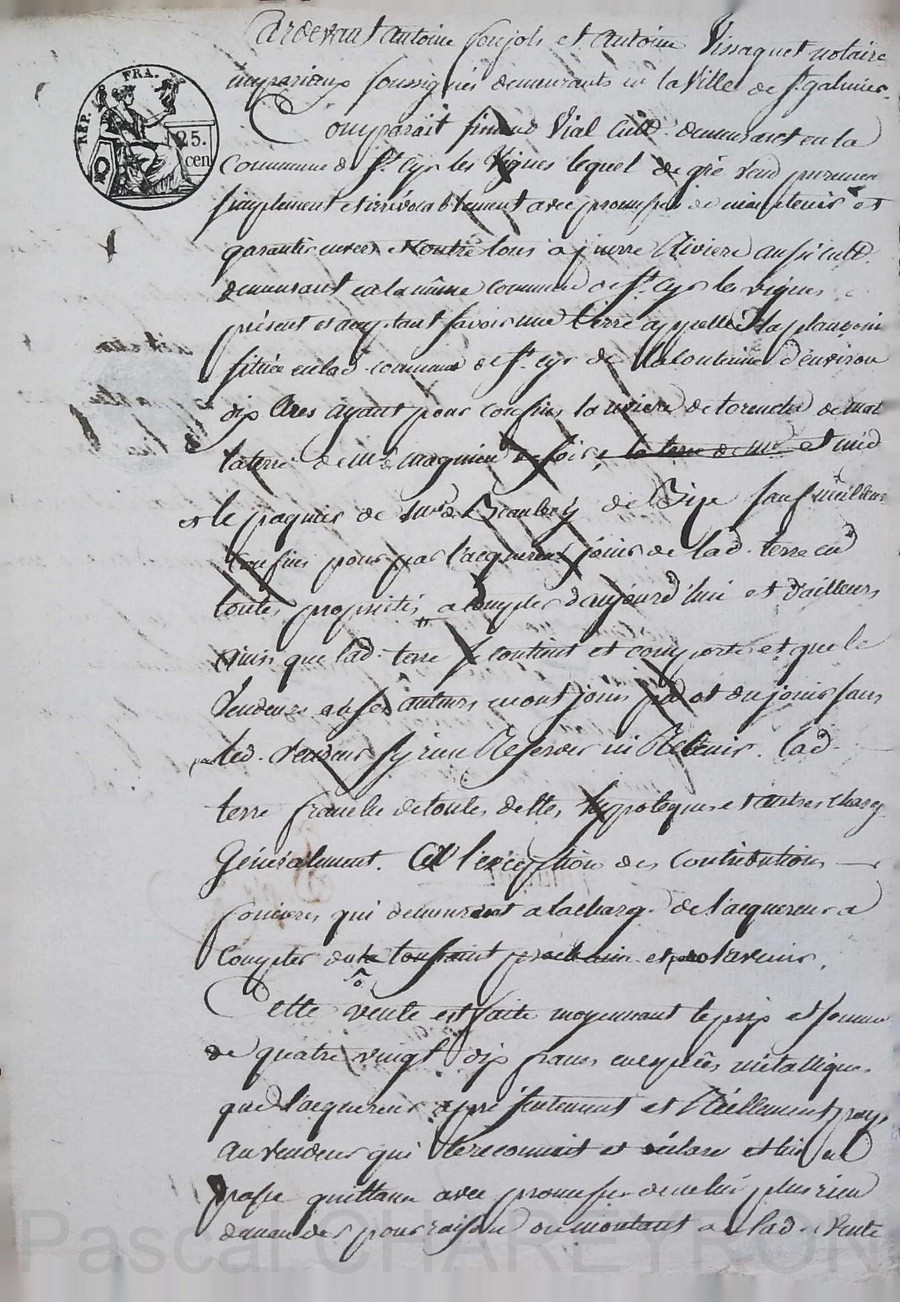 REP. FRA.
25.
cen
Pardevant antoine soujols et antoine Vissaguet notaire
imperiaux soussignés demeurants en la Ville de St. galmier.
Comparait Vial Cultr. demeurant en la
Commune de St. Cyr les Vignes lequel de gré vend purement
simplement et irrévocablement avec promesse de maintenir et
garantir envers et contre tous a pierre Riviere aussi cultr.
demeurant en la même commune de St. Cyr les vignes
présent et acceptant savoir une terre appellée
située en lad. commune de St. cyr de la Contenue d'environ
dix Ares ayant pour confins la riviere de de mat.
la terre de Mr. de magnieu de soir, la terre de Mr et midi
et le paquier de de Bise sauf meilleurs
Confins pour par l'acquereur jouir de lad. terre en
toutes proprietés a compter d'aujourd'hui et d'ailleurs
ainsi que lad. terre se contient et comporte et que le
Vendeur et ses auteurs en ont joui pu et du jouir sans
led. Vendeur s'y rien Reserver ni Retenir. lad.
terre franche de toutes dettes hypoteques et autres charg.
Généralement. A l'exception des Contributions
foncieres qui demeurent a la charge de l'acquereur a
Compter de la toussaint prochaine et pour l'avenir.
Cette vente est faite moyennant le prix et somme
de quatre vingt dix francs en espèces métalliques
que l'acquereur a présentement et Réellement payé
au vendeur qui le reconnait et déclare et lui en
passe quittance avec promesse de ne lui plus rien
demander pour raison du montant de lad. Vente
Pascal CHAREYRON